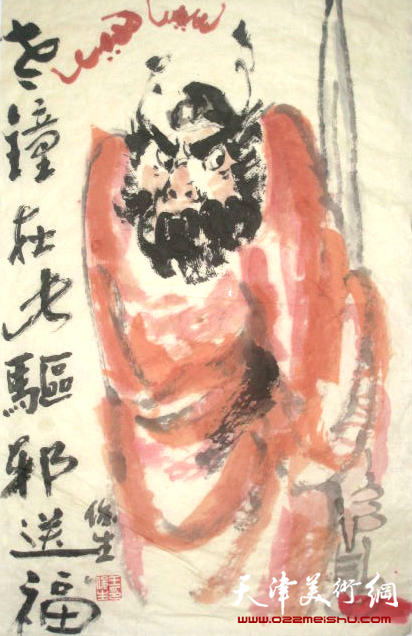 老鐘在此驅邪送福
天津美術網
www.022meishu.com